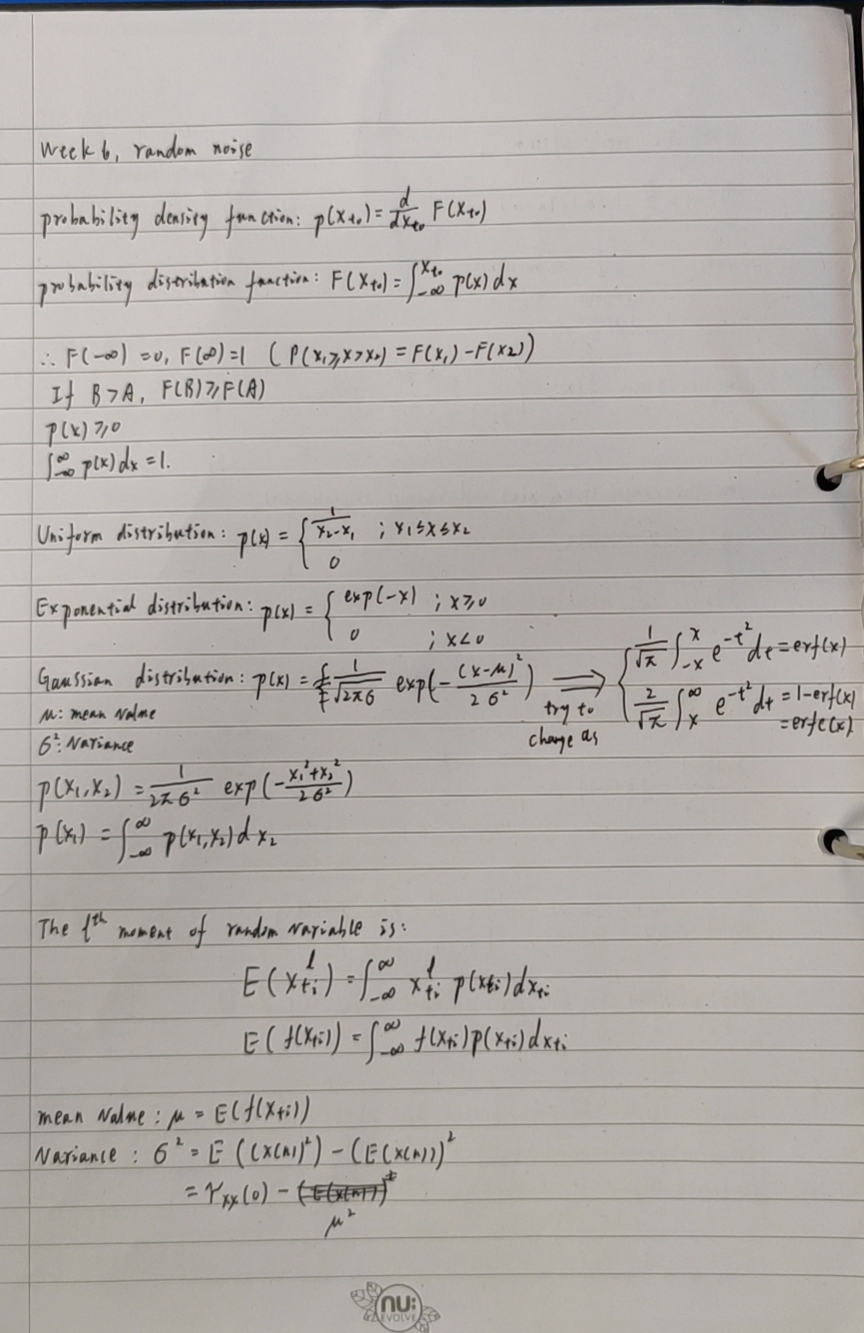 Week 6, random noise
probability density function: p(x_{t_0}) = \frac{d}{dx_{t_0}} F(x_{t_0})
probability distribution function: F(x_{t_0}) = \int_{-∞}^{x_{t_0}} p(x) dx
∴ F(-∞) = 0, F(∞) = 1 ( P(x_1 ⩾ x > x_2) = F(x_1) - F(x_2) )
If B > A, F(B) ⩾ F(A)
p(x) ⩾ 0
\int_{-∞}^{∞} p(x) dx = 1.
Uniform distribution: p(x) = { \frac{1}{x_2 - x_1} ; x_1 ≤ x ≤ x_2
0
Exponential distribution: p(x) = { exp(-x) ; x ⩾ 0
0 ; x < 0
Gaussian distribution: p(x) = \frac{1}{\sqrt{2π}σ} exp(-\frac{(x-μ)^2}{2σ^2}) ⟹ try to change as { \frac{1}{\sqrt{π}} \int_{-x}^{x} e^{-t^2} dt = erf(x)
\frac{2}{\sqrt{π}} \int_{x}^{∞} e^{-t^2} dt = 1 - erf(x)
= erfc(x).
μ: mean value
σ^2: variance
p(x_1, x_2) = \frac{1}{2πσ^2} exp(-\frac{x_1^2 + x_2^2}{2σ^2})
p(x_1) = \int_{-∞}^{∞} p(x_1, x_2) d x_2
The l^{th} moment of random variable is:
E(x_{ti}^l) = \int_{-∞}^{∞} x_{ti}^l p(x_{ti}) dx_{ti}
E(f(x_{ti})) = \int_{-∞}^{∞} f(x_{ti}) p(x_{ti}) dx_{ti}
mean value: μ = E(f(x_{ti}))
Variance: σ^2 = E((x(n)^2) - (E(x(n)))^2
= r_{xx}(0) - μ^2
nu:
EVOLVE